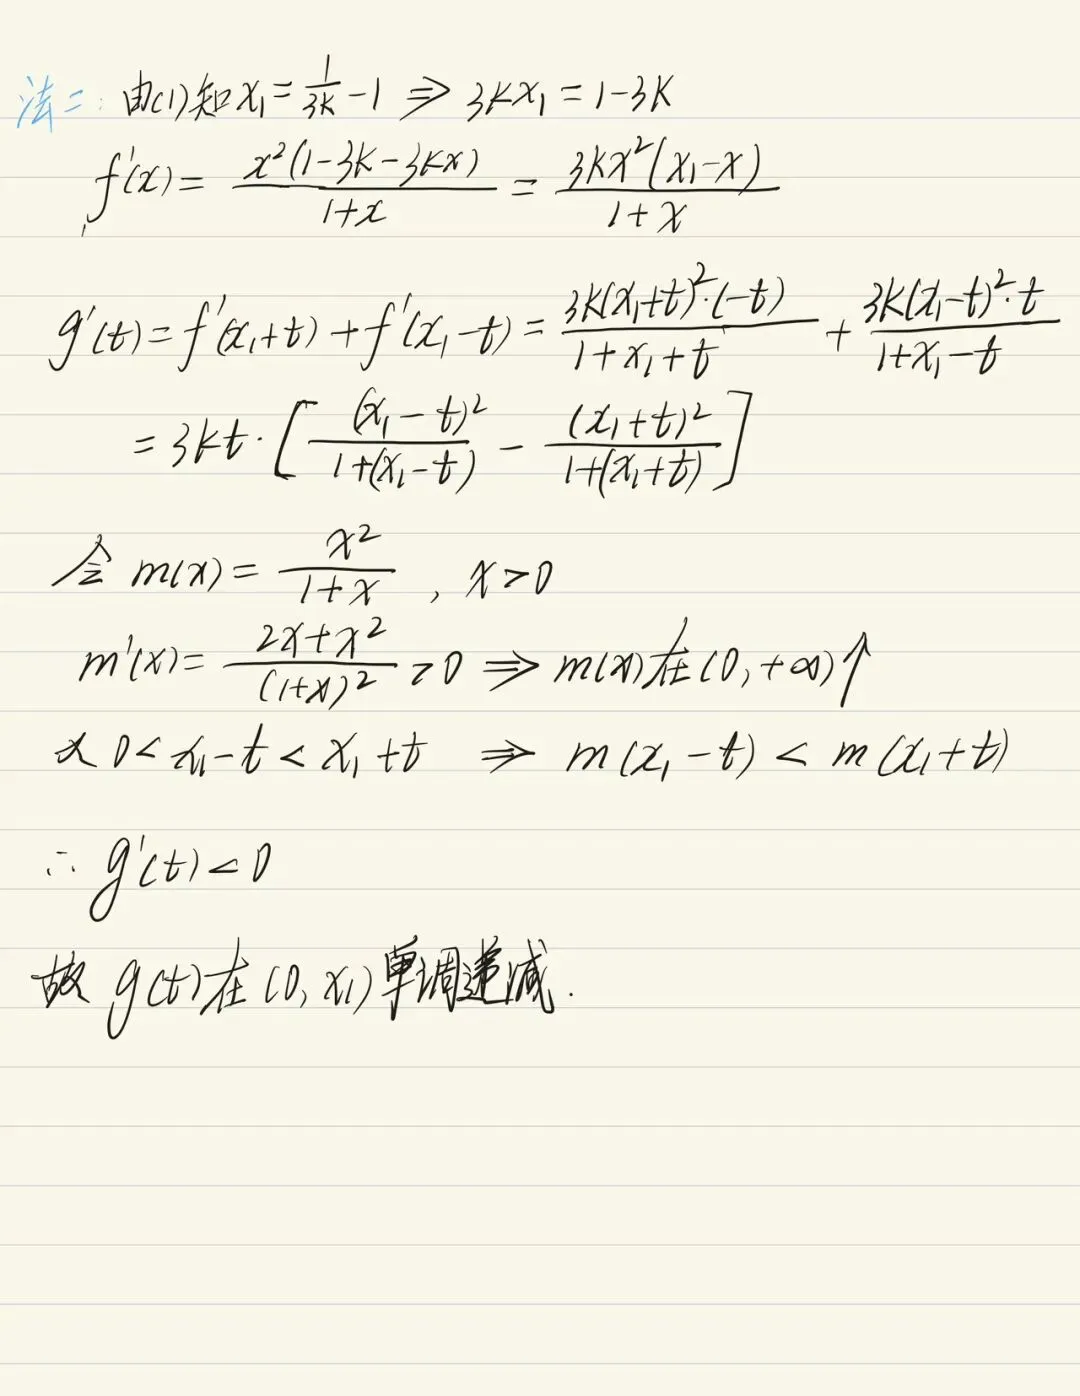 法二: 由(1)知 x₁ = 1/(3k) - 1 ⇒ 3kx₁ = 1-3k
f'(x) = x²(1-3k-3kx)/(1+x) = 3kx²(x₁-x)/(1+x)
g'(t) = f'(x₁+t) + f'(x₁-t) = 3k(x₁+t)²·(-t)/(1+x₁+t) + 3k(x₁-t)²·t/(1+x₁-t)
= 3kt·[(x₁-t)²/(1+(x₁-t)) - (x₁+t)²/(1+(x₁+t))]
令 m(x) = x²/(1+x) , x>0
m'(x) = (2x+x²)/(1+x)² >0 ⇒ m(x)在(0,+∞)↑
又 0< x₁-t < x₁+t ⇒ m(x₁-t) < m(x₁+t)
∴ g'(t)<0
故 g(t)在(0,x₁)单调递减.